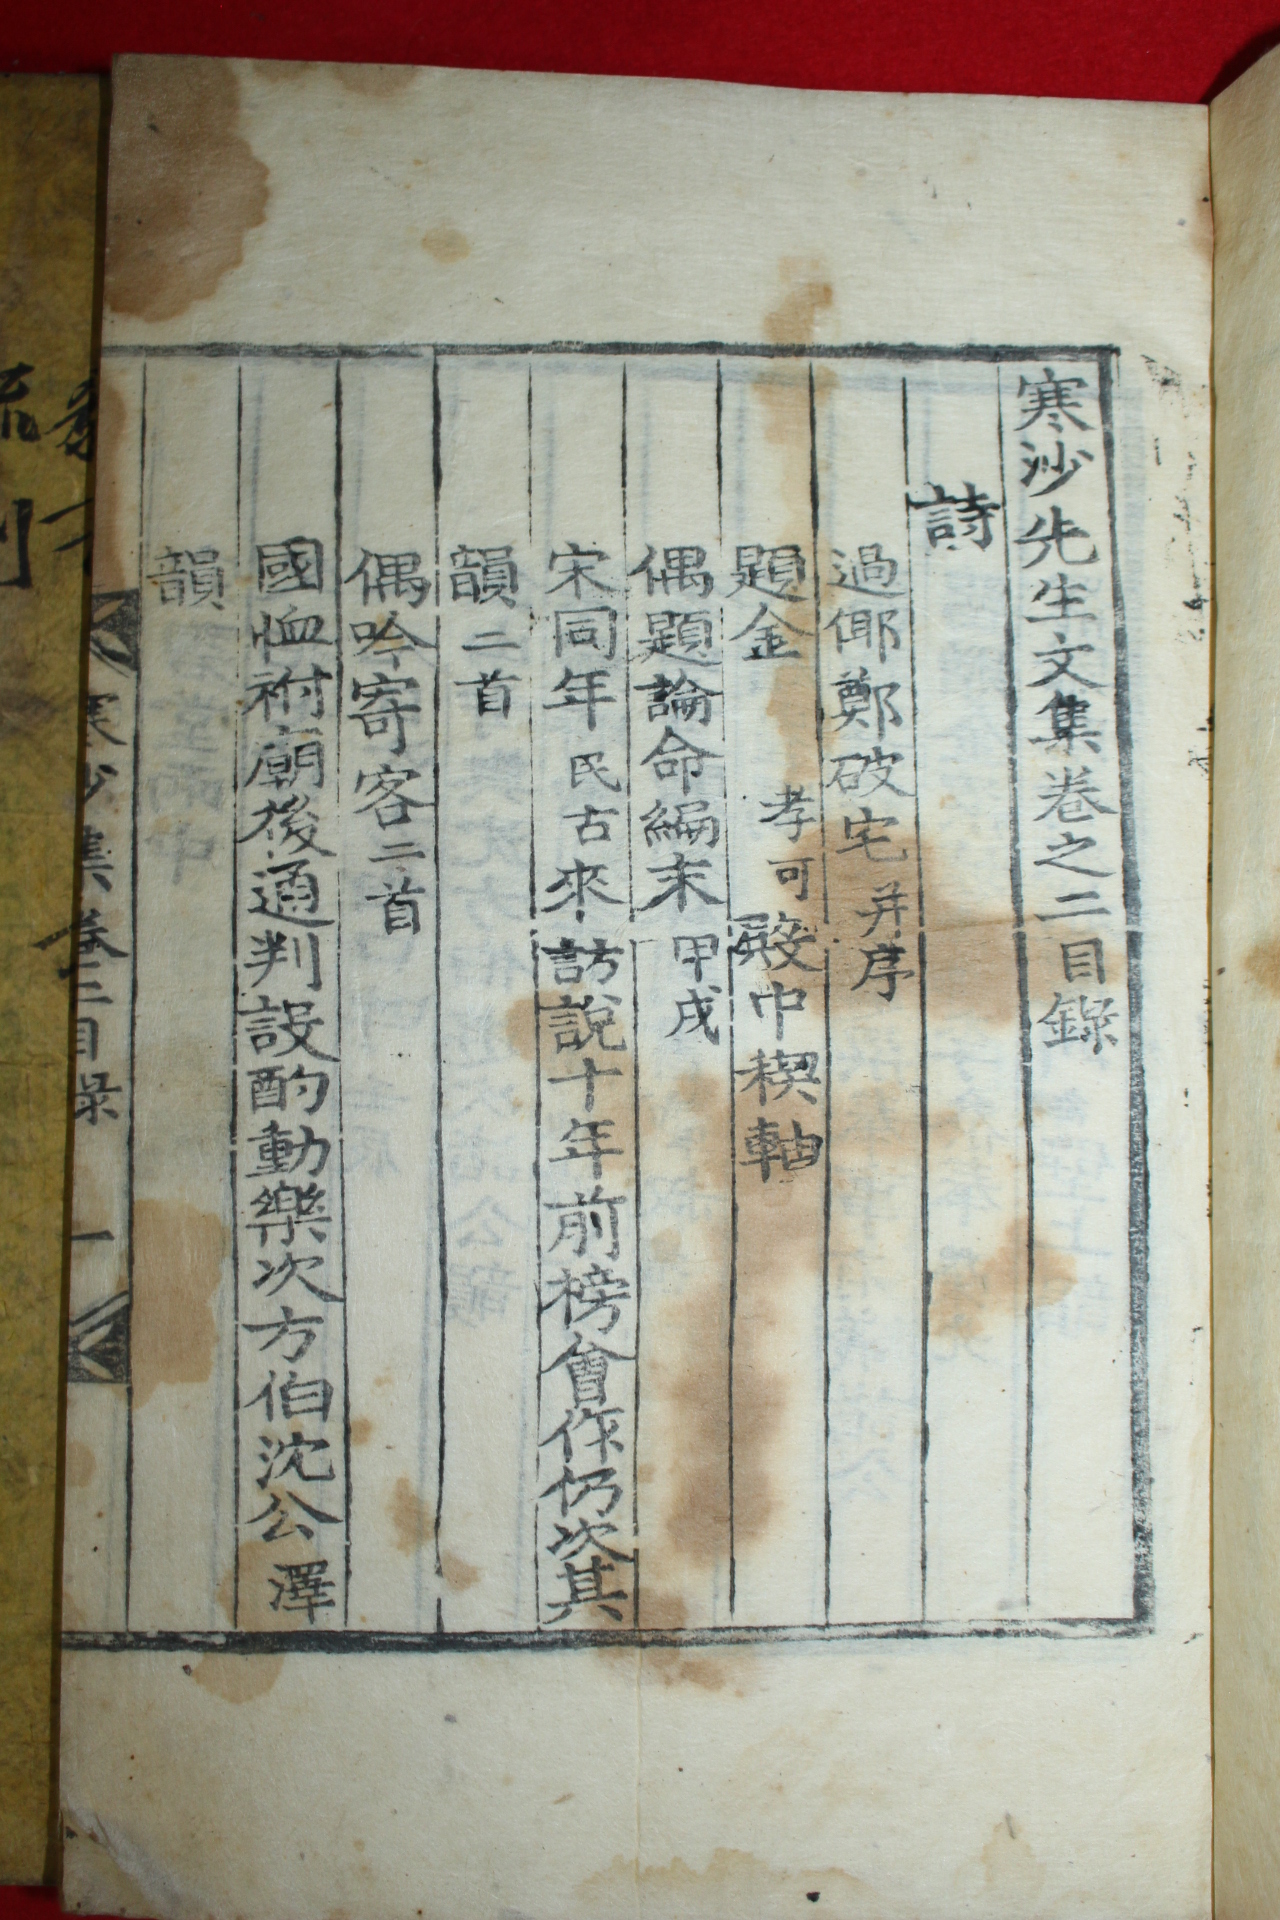 寒沙先生文集卷之二目錄
詩
過鄭破宅并序
題金孝可殿中稧軸
偶題論命編末甲戌
宋同年民古來訪說十年前榜會作仍次其
韻二首
偶吟寄客二首
國恤祔廟後通判設酌動樂次方伯沈公澤
韻
寒沙集卷二目錄 一